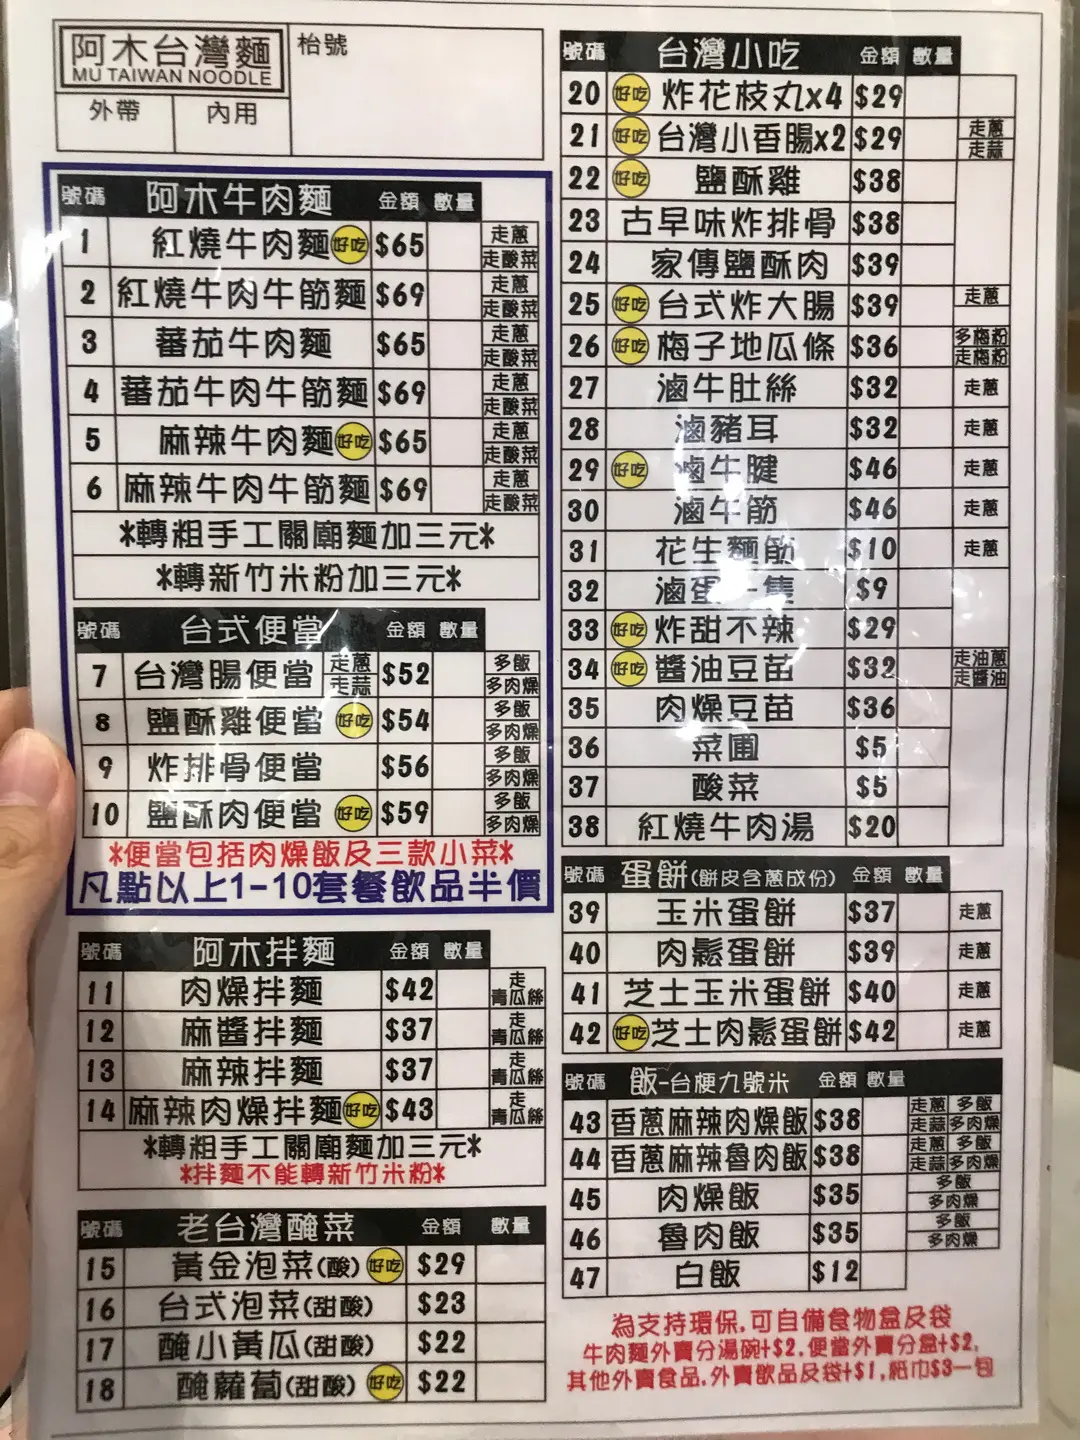 阿木台灣麵
MU TAIWAN NOODLE
枱號
外帶 內用
號碼 阿木牛肉麵 金額 數量
1 紅燒牛肉麵 好吃 $65 走蔥 走酸菜
2 紅燒牛肉牛筋麵 $69 走蔥 走酸菜
3 蕃茄牛肉麵 $65 走蔥 走酸菜
4 蕃茄牛肉牛筋麵 $69 走蔥 走酸菜
5 麻辣牛肉麵 好吃 $65 走蔥 走酸菜
6 麻辣牛肉牛筋麵 $69 走蔥 走酸菜
*轉粗手工關廟麵加三元*
*轉新竹米粉加三元*
號碼 台式便當 金額 數量
7 台灣腸便當 走蔥 走蒜 $52 多飯 多肉燥
8 鹽酥雞便當 好吃 $54 多飯 多肉燥
9 炸排骨便當 $56 多飯 多肉燥
10 鹽酥肉便當 好吃 $59 多飯 多肉燥
*便當包括肉燥飯及三款小菜*
凡點以上1-10套餐飲品半價
號碼 阿木拌麵 金額 數量
11 肉燥拌麵 $42 走青瓜絲
12 麻醬拌麵 $37 走青瓜絲
13 麻辣拌麵 $37 走青瓜絲
14 麻辣肉燥拌麵 好吃 $43 走青瓜絲
*轉粗手工關廟麵加三元*
*拌麵不能轉新竹米粉*
號碼 老台灣醃菜 金額 數量
15 黃金泡菜(酸) 好吃 $29
16 台式泡菜(甜酸) $23
17 醃小黃瓜(甜酸) $22
18 醃蘿蔔(甜酸) 好吃 $22
號碼 台灣小吃 金額 數量
20 好吃 炸花枝丸x4 $29
21 好吃 台灣小香腸x2 $29 走蔥 走蒜
22 好吃 鹽酥雞 $38
23 古早味炸排骨 $38
24 家傳鹽酥肉 $39
25 好吃 台式炸大腸 $39 走蔥
26 好吃 梅子地瓜條 $36 多梅粉 走梅粉
27 滷牛肚絲 $32 走蔥
28 滷豬耳 $32 走蔥
29 好吃 滷牛腱 $46 走蔥
30 滷牛筋 $46 走蔥
31 花生麵筋 $10 走蔥
32 滷蛋一隻 $9
33 好吃 炸甜不辣 $29
34 好吃 醬油豆苗 $32 走油蔥 走醬油
35 肉燥豆苗 $36
36 菜圃 $5
37 酸菜 $5
38 紅燒牛肉湯 $20
號碼 蛋餅(餅皮含蔥成份) 金額 數量
39 玉米蛋餅 $37 走蔥
40 肉鬆蛋餅 $39 走蔥
41 芝士玉米蛋餅 $40 走蔥
42 好吃 芝士肉鬆蛋餅 $42 走蔥
號碼 飯-台梗九號米 金額 數量
43 香蔥麻辣肉燥飯 $38 走蔥 多飯 走蒜 多肉燥
44 香蔥麻辣魯肉飯 $38 走蔥 多飯 走蒜 多肉燥
45 肉燥飯 $35 多飯 多肉燥
46 魯肉飯 $35 多飯 多肉燥
47 白飯 $12
為支持環保.可自備食物盒及袋
牛肉麵外賣分湯碗+$2.便當外賣分盒+$2.
其他外賣食品.外賣飲品及袋+$1,紙巾$3一包